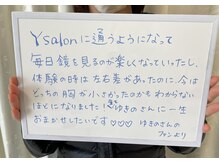 Ysalonに通うようになって
毎日鏡を見るのが楽しくなっていったし、
体験の時は左右差があったのに、今は
どっちの胸が小さかったのかもわからない
ほどになりました!ゆきのさんに一生
おまかせしたいです♡♡♡ ゆきのさんの
ファンより